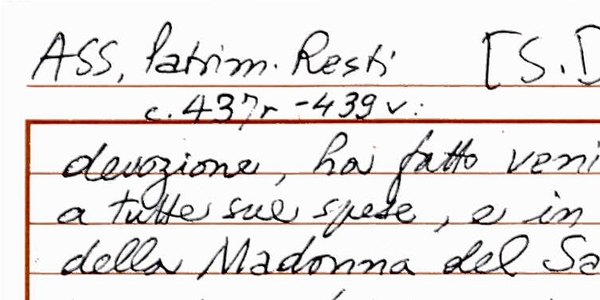 ASS, Patrim. Resti [S.D
c. 437r - 439v:
devozione, ha fatto veni
a tutte sue spese, e in
della Madonna del Sa